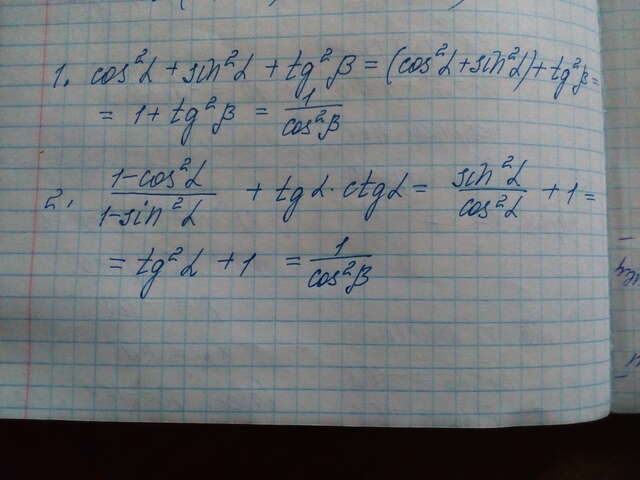 1. cos²α + sin²α + tg²β = (cos²α + sin²α) + tg²β =
= 1 + tg²β = 1/cos²β
2. (1-cos²α)/(1-sin²α) + tgα · ctgα = sin²α/cos²α + 1 =
= tg²α + 1 = 1/cos²β